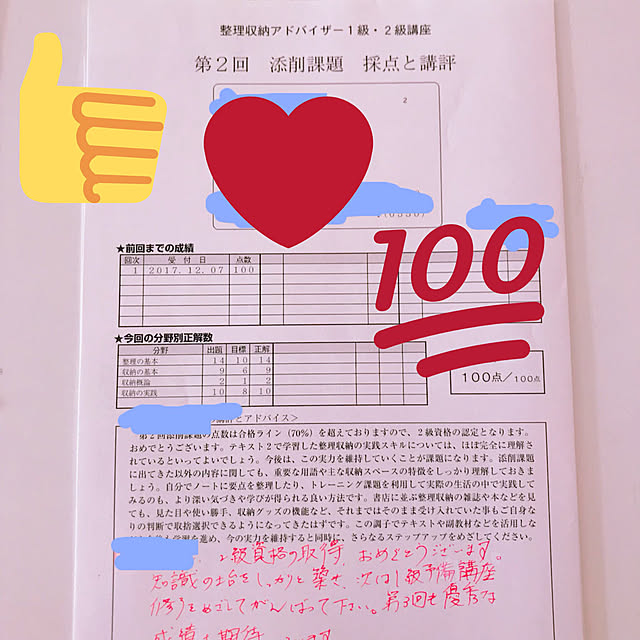 整理収納アドバイザー1級・2級講座
第2回 添削課題 採点と講評
2
100
★前回までの成績
回次 受付日 点数
1 2017.12.07 100
★今回の分野別正解数
分野 出題 目標 正解
整理の基本 14 10 14
収納の基本 9 6 9
収納概論 2 1 2
収納の実践 10 8 10
100点/100点
講評とアドバイス>
第2回添削課題の点数は合格ライン(70%)を超えておりますので、2級資格の認定となります。
おめでとうございます。テキスト2で学習した整理収納の実践スキルについては、ほぼ完全に理解さ
れているといってよいでしょう。今後は、この実力を維持していくことが課題になります。添削課題
に出てきた以外の内容に関しても、重要な用語や主な収納スペースの特徴をしっかり理解しておきま
しょう。自分でノートに要点を整理したり、トレーニング課題を利用して実際の生活の中で実践して
みるのも、より深い気づきや学びが得られる良い方法です。書店に並ぶ整理収納の雑誌や本などを見
ても、見た目や使い勝手、収納グッズの機能など、それまではそのまま受け入れていた事もご自分な
りの判断で取捨選択できるようになってきたはずです。この調子でテキストや副教材などを活用しな
学習を進め、今の実力を維持すると同時に、さらなるステップアップをめざしてください。
2級資格の取得、おめでとうございます。
知識の土台をしっかりと築き、次は1級予備講座
修了をめざしてがんばって下さい。第3回も優秀な
成績を期待